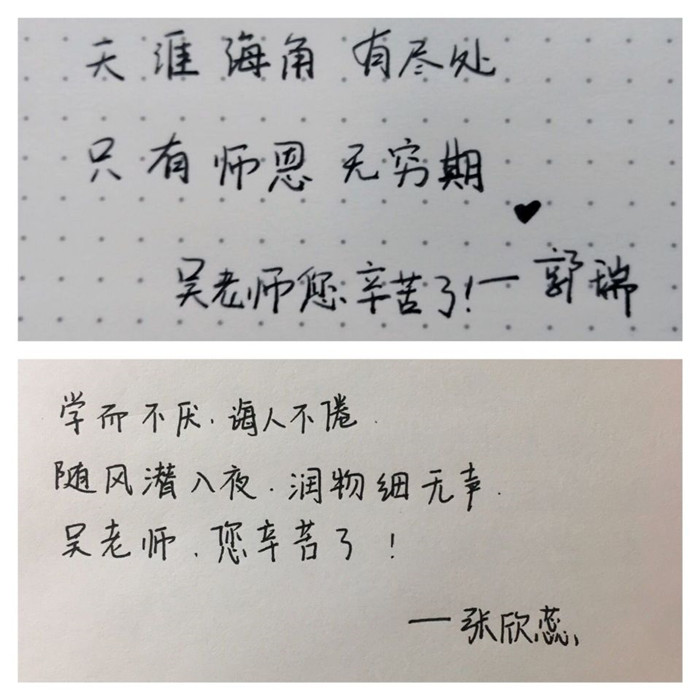 天涯海角有尽处
只有师恩无穷期
吴老师您辛苦了!一郭瑞
学而不厌.诲人不倦.
随风潜入夜.润物细无声.
吴老师、您辛苦了!
一张欣蕊